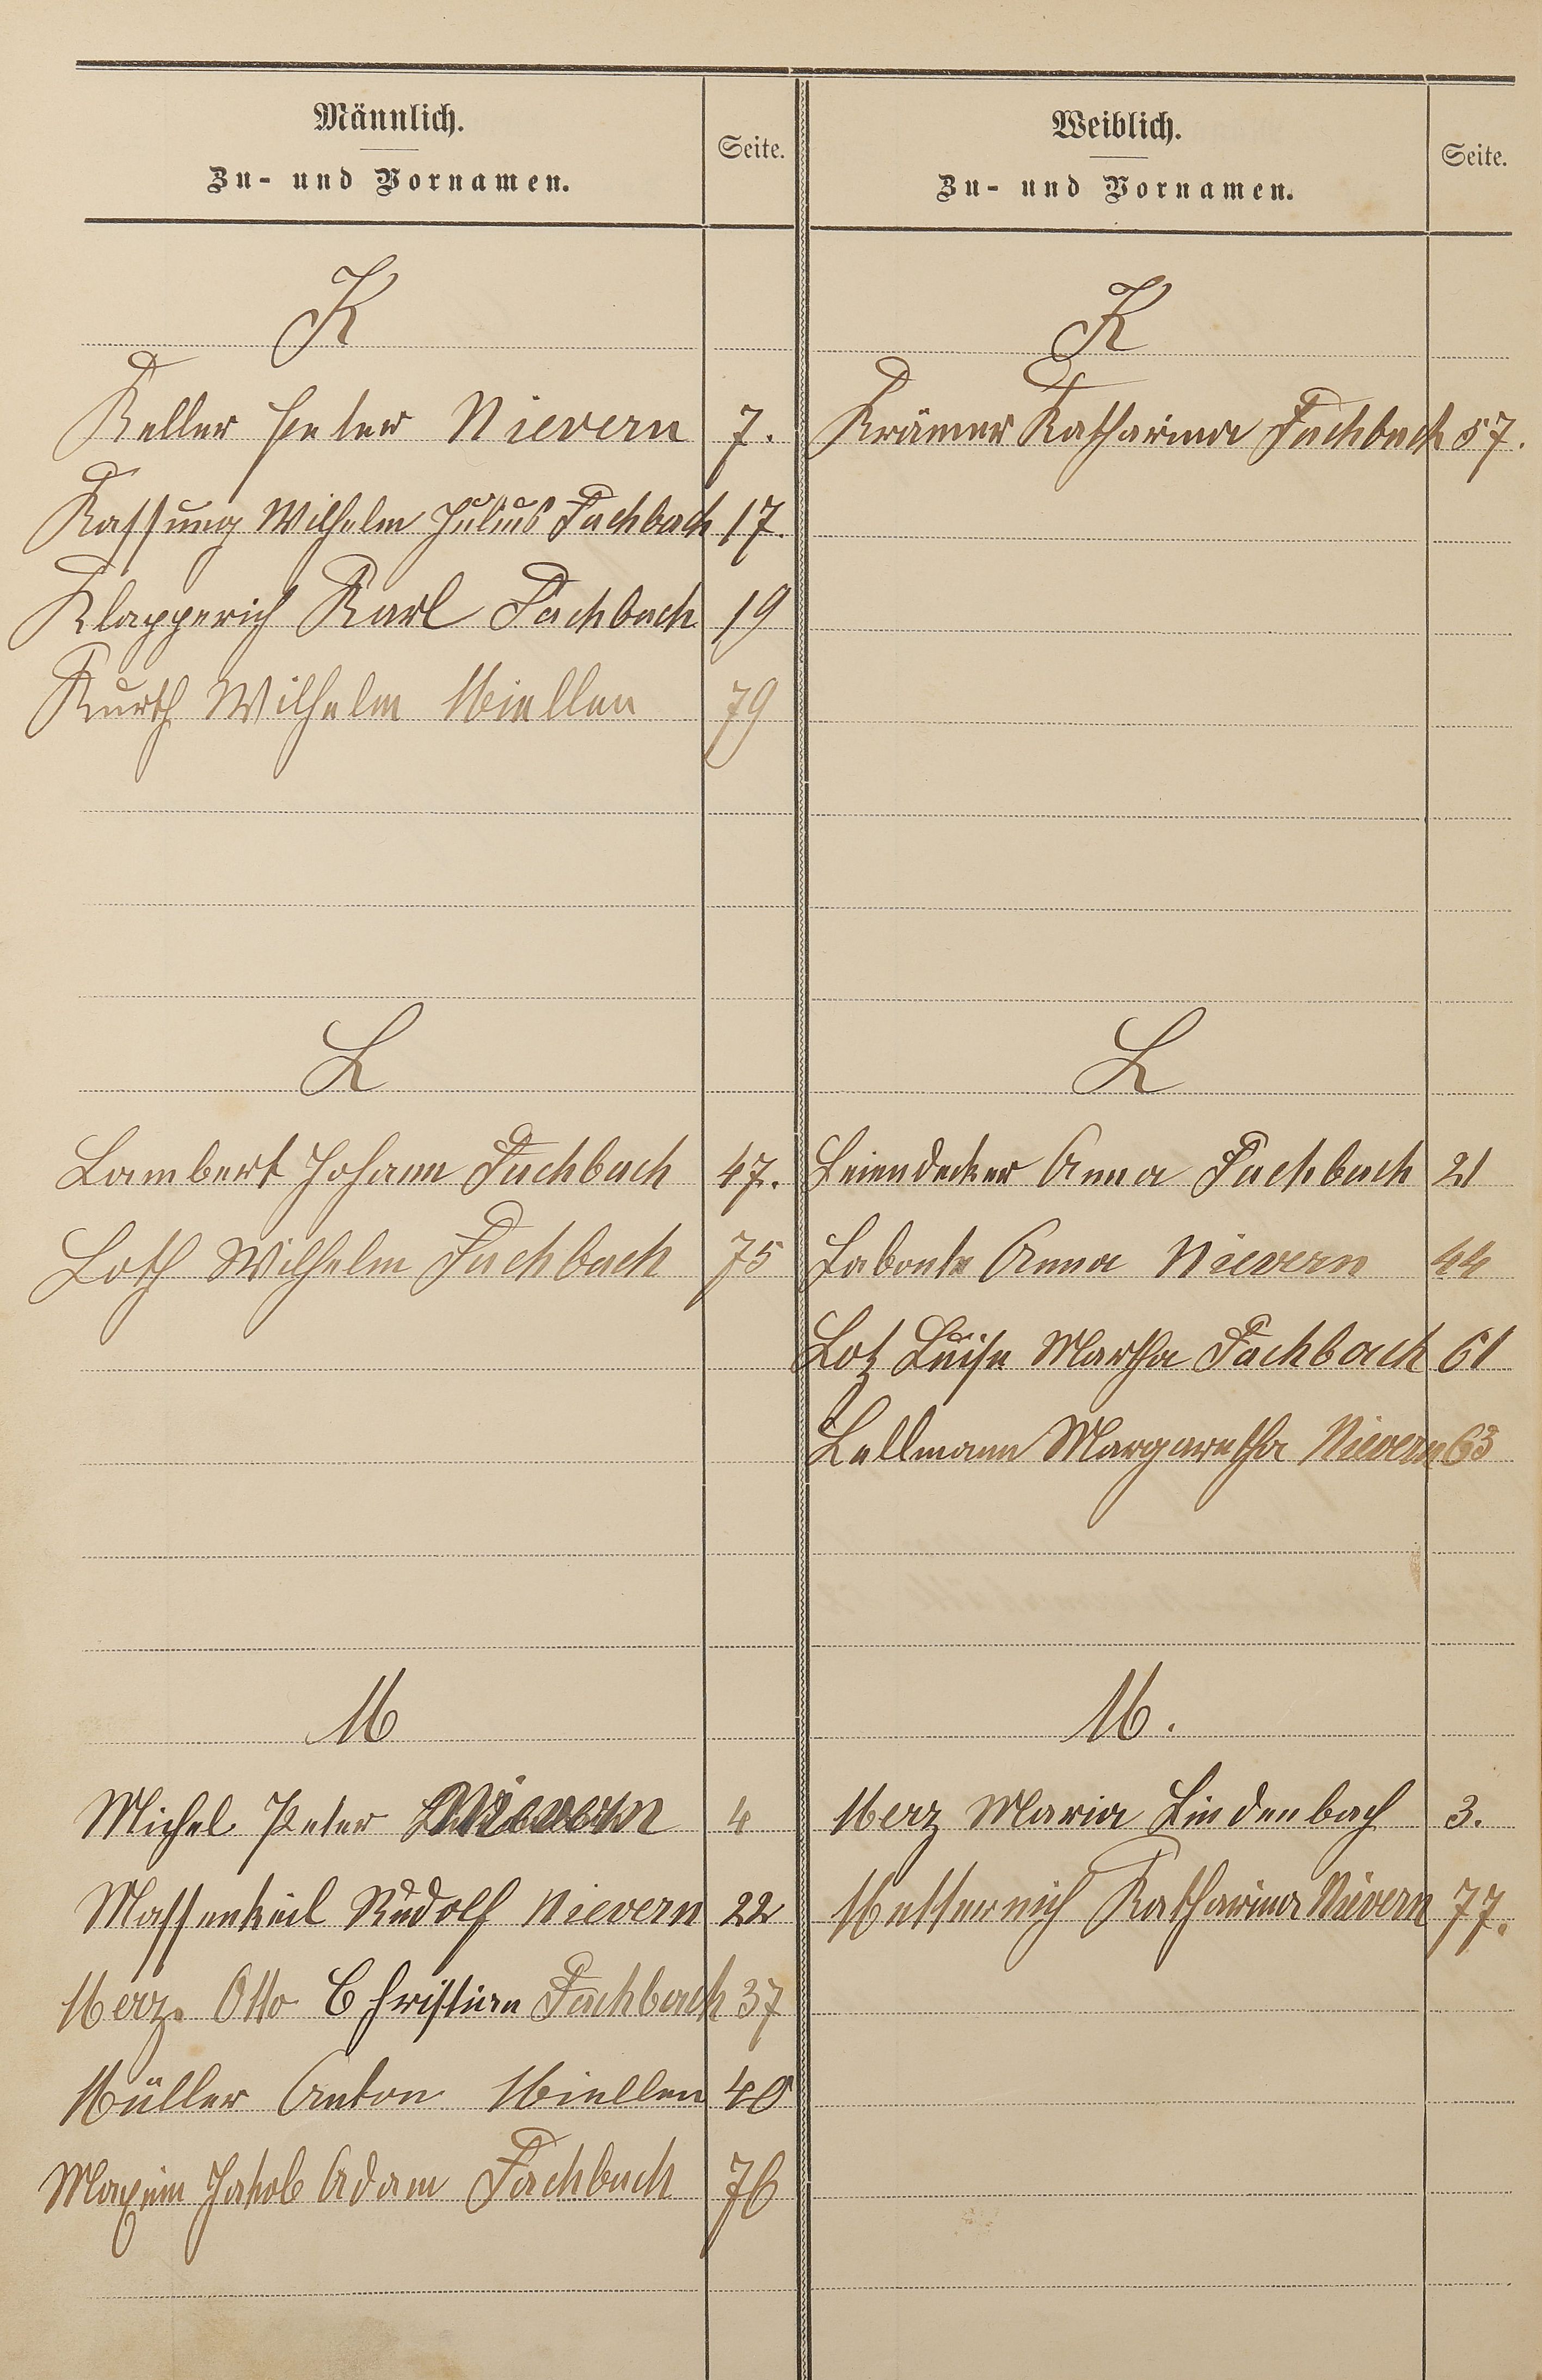 Männlich.
Zu- und Vornamen.
Seite.
K
Keller Peter Nievern 7.
Kassung Wilhelm Julius Fachbach 17.
Klapperich Karl Fachbach 19
Kurth Wilhelm Miellen 79
L
Lambert Johann Fachbach 47.
Loth Wilhelm Fachbach 75
M
Michel Peter Nievern 4
Massenkeil Rudolf Nievern 22
Merz. Otto Christian Fachbach 37
Müller Anton Miellen 40
Maxim Jakob Adam Fachbach 76
Weiblich.
Zu- und Vornamen.
Seite.
K
Krämer Katharina Fachbach 57.
L
Leiendecker Anna Fachbach 21
Labonte Anna Nievern 44
Lotz Luise Martha Fachbach 61
Lellmann Margaretha Nievern 63
M.
Merz Maria Lindenbach 3.
Metternich Katharina Nievern 77.